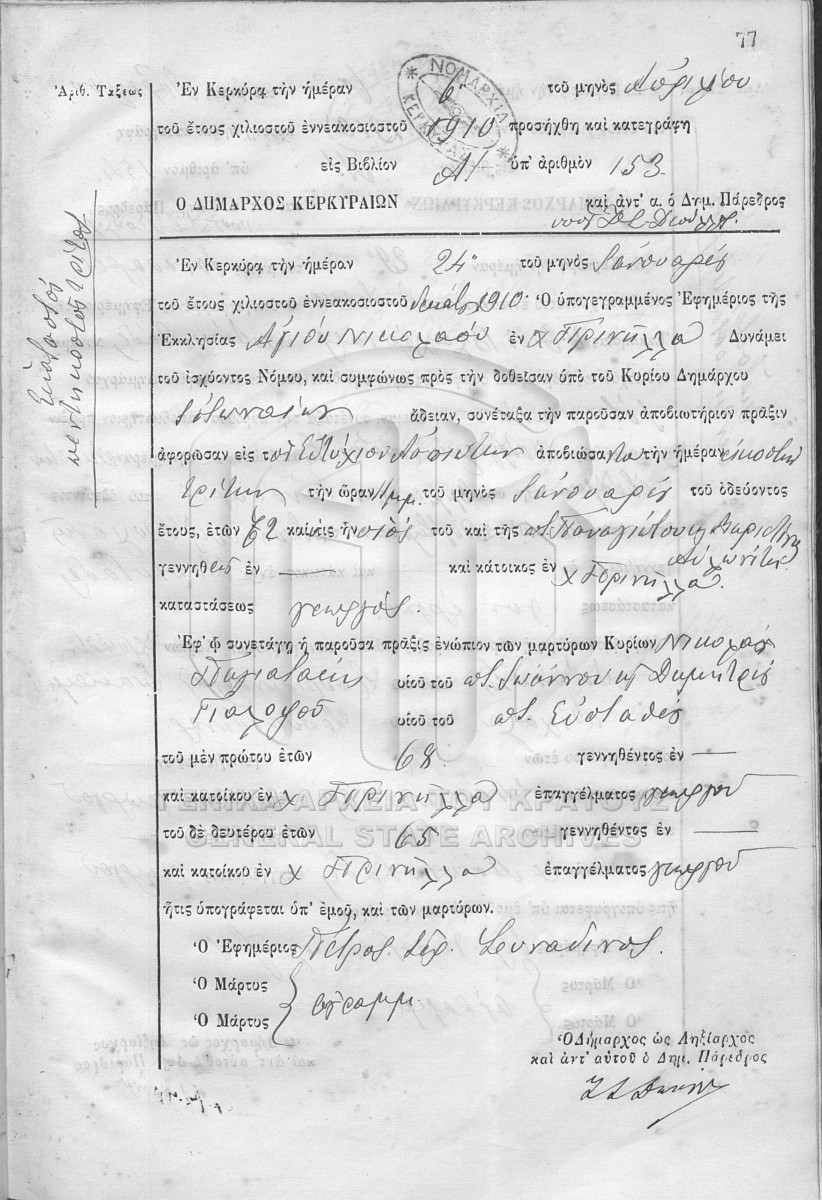 77
Ἀριθ. Τάξεως Ἐν Κερκύρᾳ τὴν ἡμέραν 6ῃ τοῦ μηνὸς Ἀπριλίου
ΝΟΜΑΡΧΙΑ ΚΕΡΚΥΡΑΣ
τοῦ ἔτους χιλιοστοῦ ἐννεακοσιοστοῦ 1910 προσήχθη καὶ κατεγράφη
εἰς Βιβλίον Α/ ὑπ' ἀριθμὸν 153
Ο ΔΗΜΑΡΧΟΣ ΚΕΡΚΥΡΑΙΩΝ καὶ ἀντ' α. ὁ Δημ. Πάρεδρος
Ἑκατοστὸς
πεντηκοστὸς τρίτος
Ἐν Κερκύρᾳ τὴν ἡμέραν 24ῃ τοῦ μηνὸς Ἰανουαρίου
τοῦ ἔτους χιλιοστοῦ ἐννεακοσιοστοῦ δεκάτου 1910 Ὁ ὑπογεγραμμένος Ἐφημέριος τῆς
Ἐκκλησίας Ἁγίου Νικολάου ἐν χ Πρινύλλα Δυνάμει
τοῦ ἰσχύοντος Νόμου, καὶ συμφώνως πρὸς τὴν δοθεῖσαν ὑπὸ τοῦ Κυρίου Δημάρχου
ἄδειαν, συνέταξα τὴν παροῦσαν ἀποβιωτήριον πρᾶξιν
ἀφορῶσαν εἰς τὸν Εὐτύχιον ἀποβιώσαντα τὴν ἡμέραν εἰκοστὴν
τρίτην τὴν ὥραν μμ. τοῦ μηνὸς Ἰανουαρίου τοῦ ὁδεύοντος
ἔτους, ἐτῶν 62 καὶ τις ἦν υἱὸς τοῦ καὶ τῆς ποτ. Παναγιώτου
Αὐλωνίτη
γεννηθεὶς ἐν — καὶ κάτοικος ἐν χ Πρινύλλα
καταστάσεως γεωργός.
Ἐφ' ᾧ συνετάγη ἡ παροῦσα πρᾶξις ἐνώπιον τῶν μαρτύρων Κυρίων Νικολάου
υἱοῦ τοῦ ποτ. Ἰωάννου κ Δημητρίου
Γιαλοψοῦ υἱοῦ τοῦ ποτ. Εὐσταθίου
τοῦ μὲν πρώτου ἐτῶν 68 γεννηθέντος ἐν —
καὶ κατοίκου ἐν χ Πρινύλλα ἐπαγγέλματος γεωργοῦ
ΓΕΝΙΚΑ ΑΡΧΕΙΑ ΤΟΥ ΚΡΑΤΟΥΣ
τοῦ δὲ δευτέρου ἐτῶν 65 γεννηθέντος ἐν —
GENERAL STATE ARCHIVES
καὶ κατοίκου ἐν χ Πρινύλλα ἐπαγγέλματος γεωργοῦ
ἥτις ὑπογράφεται ὑπ' ἐμοῦ, καὶ τῶν μαρτύρων.
Ὁ Ἐφημέριος Πέτρος Ἱερ. Συναδινός.
Ὁ Μάρτυς
ἀγράμμ.
Ὁ Μάρτυς
Ὁ Δήμαρχος ὡς Ληξίαρχος
καὶ ἀντ' αὐτοῦ ὁ Δημ. Πάρεδρος